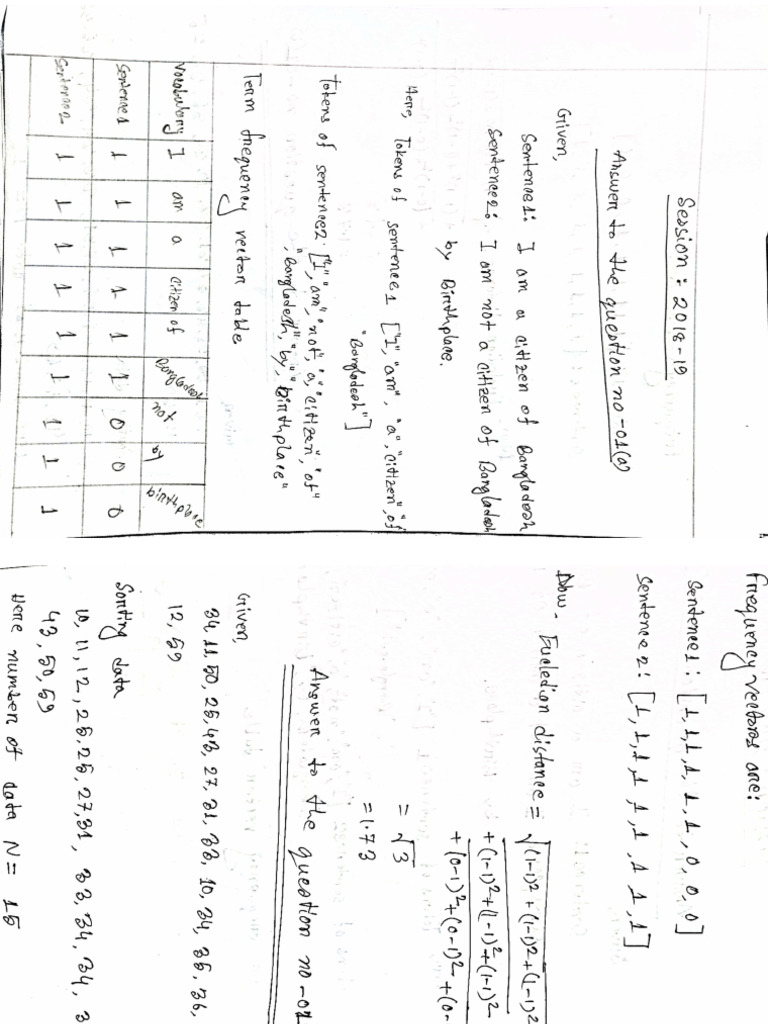 Session : 2018-19
Answer to the question no-01(a)
Given,
Sentence1: I am a citizen of Bangladesh
Sentence2: I am not a citizen of Bangladesh
by Birthplace.
Here, Tokens of sentence1 ["I", "am", "a", "citizen", "of
"Bangladesh"]
Tokens of sentence2 ["I", "am", "not", "a", "citizen", "of"
"Bangladesh", "by", "Birthplace"
Term frequency vector table
Vocabulary I am a citizen of Bangladesh not by birthplace
Sentence1 1 1 1 1 1 1 0 0 0
Sentence2 1 1 1 1 1 1 1 1 1
Frequency vectors are:
Sentence1 : [1,1,1,1,1,1,0,0,0]
Sentence2 : [1,1,1,1,1,1,1,1,1]
Now, Eucledian distance = √(1-1)²+(1-1)²+(1-1)²
+(1-1)²+(1-1)²+(1-1)²
+(0-1)²+(0-1)²+(0-
= √3
= 1.73
Answer to the question no-01
Given,
34, 11, 50, 25, 43, 27, 31, 33, 10, 34, 35, 36,
12, 59
Sorting data
10, 11, 12, 25, 25, 27, 31, 33, 34, 34, 3
43, 50, 59
Here number of data N = 15